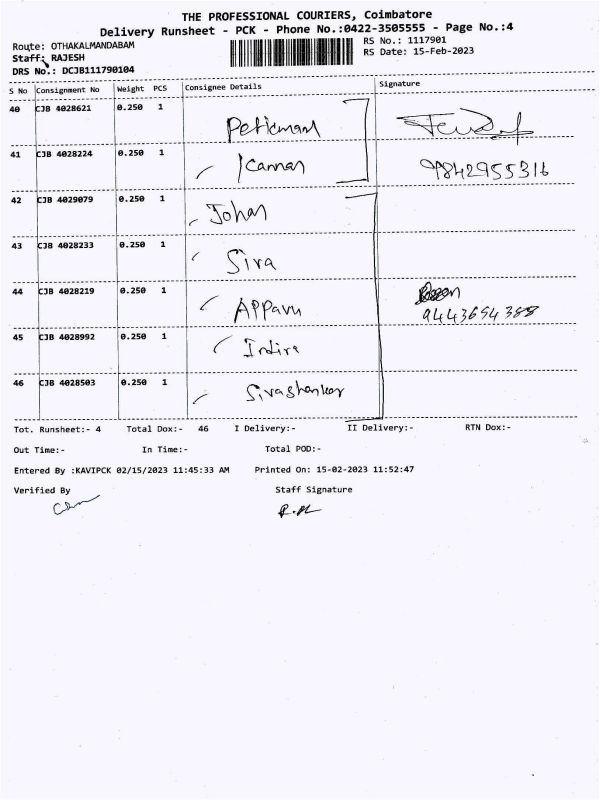 THE PROFESSIONAL COURIERS, Coimbatore
Delivery Runsheet - PCK - Phone No.:0422-3505555 - Page No.:4
Route: OTHAKALMANDABAM
RS No.: 1117901
Staff: RAJESH
RS Date: 15-Feb-2023
DRS No.: DCJB111790104
S No Consignment No Weight PCS Consignee Details Signature
40 CJB 4028621 0.250 1
41 CJB 4028224 0.250 1 Kannan 9842955316
42 CJB 4029079 0.250 1 Johan
43 CJB 4028233 0.250 1 Siva
44 CJB 4028219 0.250 1 Appavu 9443694388
45 CJB 4028992 0.250 1 Indira
46 CJB 4028503 0.250 1 Sivashankar
Tot. Runsheet:- 4 Total Dox:- 46 I Delivery:- II Delivery:- RTN Dox:-
Out Time:- In Time:- Total POD:-
Entered By :KAVIPCK 02/15/2023 11:45:33 AM Printed On: 15-02-2023 11:52:47
Verified By Staff Signature